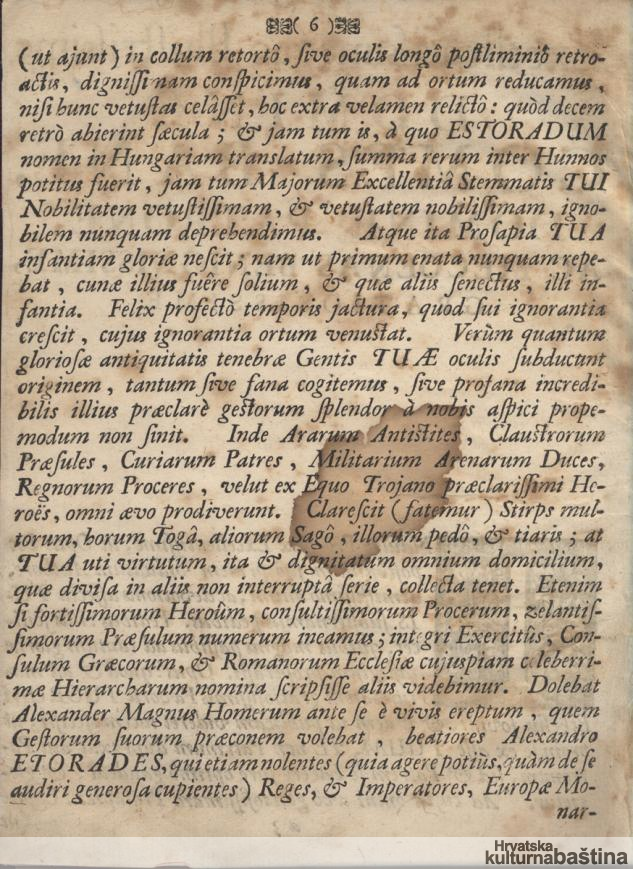 ( 6 )
(ut ajunt) in collum retortô, ſive oculis longô poſtliminiô retro-
actis, digniſſimam conſpicimus, quam ad ortum reducamus,
niſi hunc vetuſtas celâſſet, hoc extra velamen relictô: quòd decem
retrò abierint ſæcula; & jam tum is, à quo ESTORADUM
nomen in Hungariam translatum, ſumma rerum inter Hunnos
potitus fuerit, jam tum Majorum Excellentiâ Stemmatis TUI
Nobilitatem vetuſtiſſimam, & vetuſtatem nobiliſſimam, igno-
bilem nunquam deprehendimus. Atque ita Proſapia TUA
infantiam gloriæ neſcit; nam ut primum enata nunquam repe-
bat, cunæ illius fuêre ſolium, & quæ aliis ſenectus, illi in-
fantia. Felix profectò temporis jactura, quod ſui ignorantia
creſcit, cujus ignorantia ortum venuſtat. Verùm quantum
glorioſæ antiquitatis tenebræ Gentis TUÆ oculis ſubducunt
originem, tantum ſive fana cogitemus, ſive profana incredi-
bilis illius præclarè geſtorum ſplendor à nobis aſpici prope-
modum non ſinit. Inde Ararum Antiſtites, Clauſtrorum
Præſules, Curiarum Patres, Militarium Arenarum Duces,
Regnorum Proceres, velut ex Equo Trojano præclariſſimi He-
roës, omni ævo prodiverunt. Clareſcit (fatemur) Stirps mul-
torum, horum Togâ, aliorum Sagô, illorum pedô, & tiaris; at
TUA uti virtutum, ita & dignitatum omnium domicilium,
quæ diviſa in aliis non interruptâ ſerie, collecta tenet. Etenim
ſi fortiſſimorum Heroûm, conſultiſſimorum Procerum, zelantiſ-
ſimorum Præſulum numerum ineamus; integri Exercitûs, Con-
ſulum Græcorum, & Romanorum Eccleſiæ cujuspiam celeberri-
mæ Hierarcharum nomina ſcripſiſſe aliis videbimur. Dolebat
Alexander Magnus Homerum ante ſe è vivis ereptum, quem
Geſtorum ſuorum præconem volebat, beatiores Alexandro
ETORADES, qui etiam nolentes (quia agere potiùs, quàm de ſe
audiri generoſa cupientes) Reges, & Imperatores, Europæ Mo-
nar-
Hrvatska
kulturnabaština